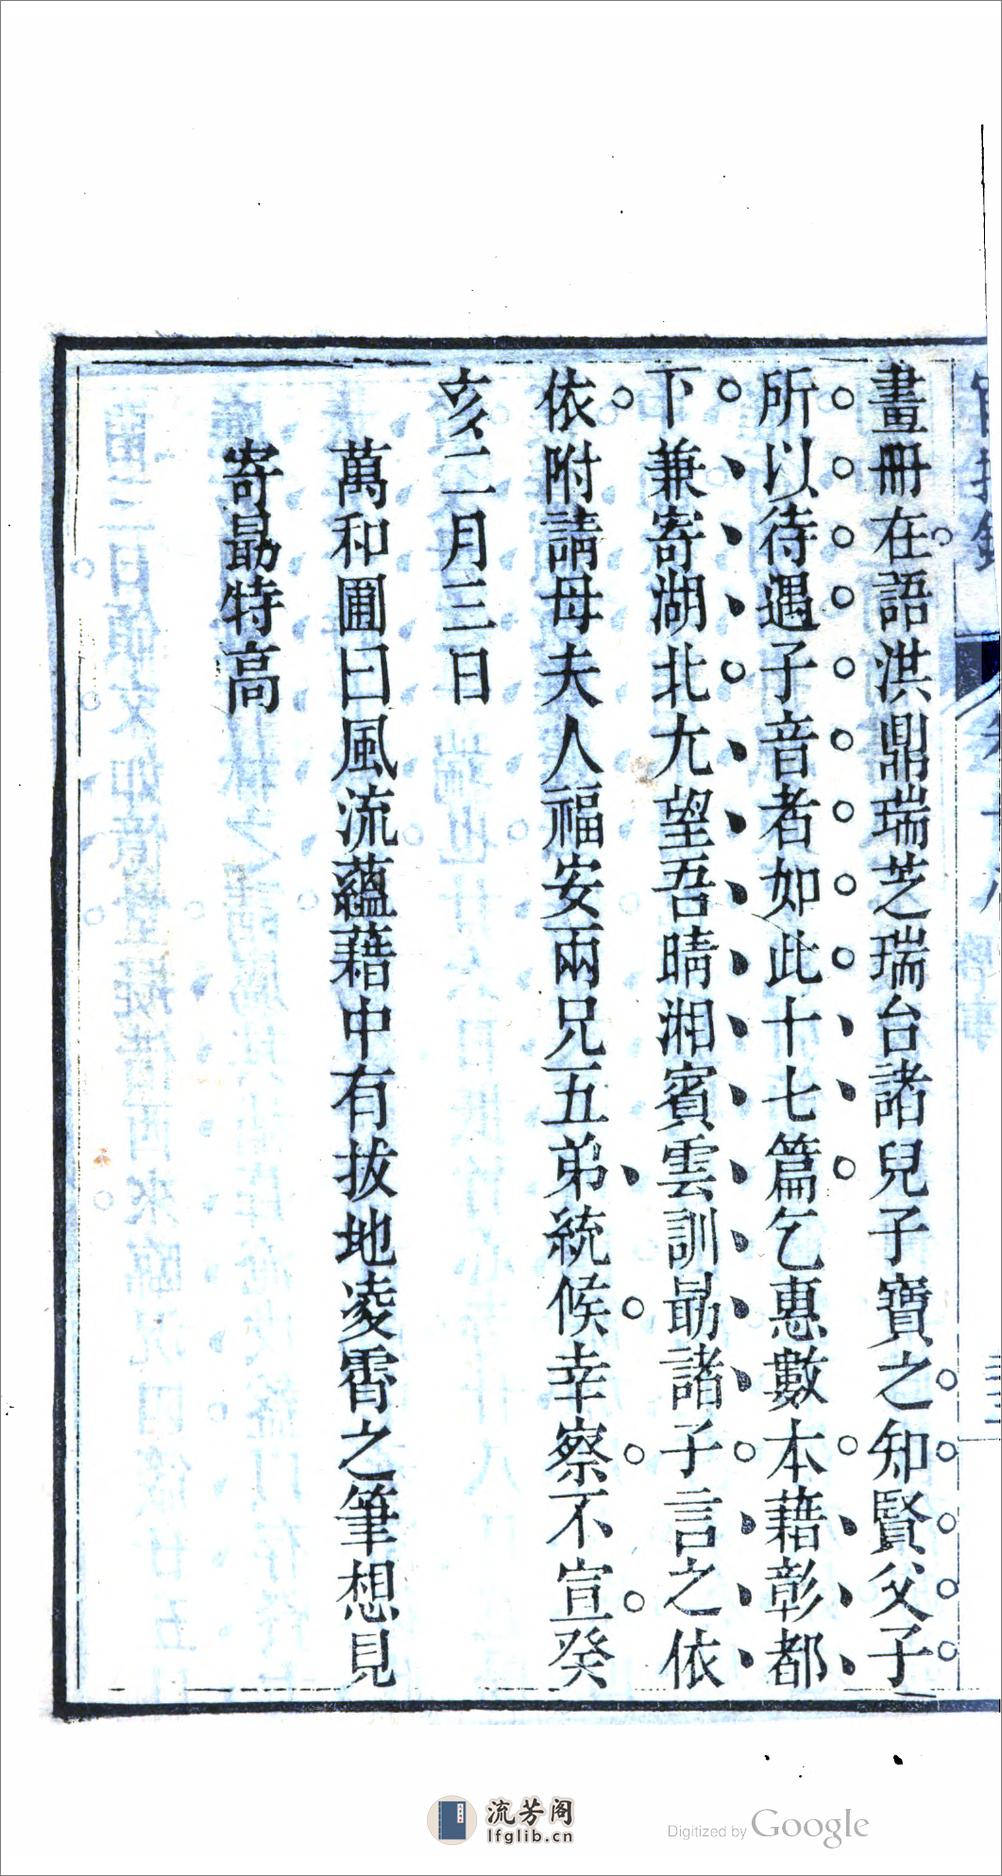 畫冊在語洪鼎瑞芝瑞台諸兒子寶之知賢父子
所以待遇子音者如此十七篇乞惠數本藉彰都
下兼寄湖北尤望吾晴湘賓雲訓勗諸子言之依
依附請母夫人福安兩兄五弟統候幸察不宣癸
亥二月三日
萬和圃曰風流蘊藉中有拔地凌霄之筆想見
寄勗特高
流芳阁
lfglib.cn
Digitized by Google